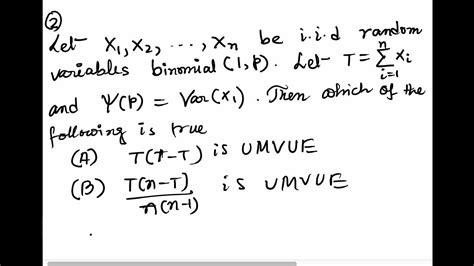 ②
Let X1, X2, ..., Xn be i.i.d random
variables binomial (1, p). Let T = ∑_{i=1}^{n} Xi
and Ψ(p) = Var(X1). Then which of the
following is true
(A) T(T-T) is UMVUE
(B) T(n-T)/n(n-1) is UMVUE